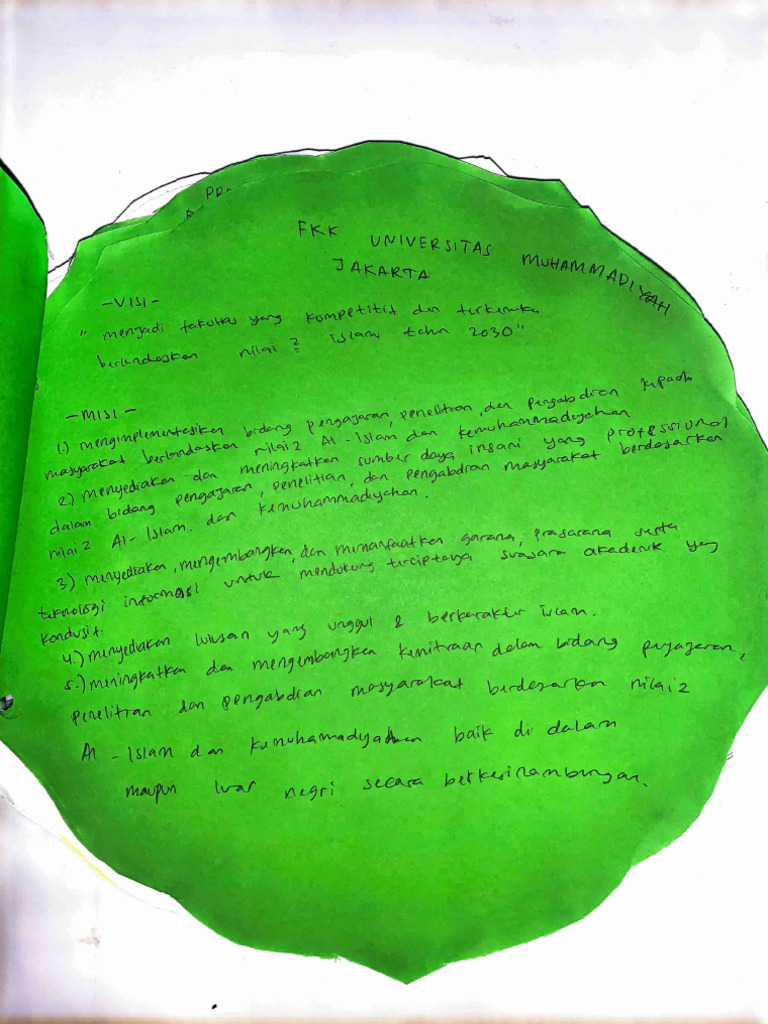 PD
FKK UNIVERSITAS MUHAMMADIYAH
JAKARTA
-VISI-
" menjadi fakultas yang kompetitif dan terkemuka
berlandaskan nilai 2 islami tahn 2030"
-MISI-
1.) mengimplementasikan bidang pengajaran, penelitian, dan pengabdian kepada
masyarakat berlandaskan nilai2 Al-Islam dan kemuhammadiyahan
2.) menyediakan dan meningkatkan sumber daya insani yang professional
dalam bidang pengajaran, penelitian, dan pengabdian masyarakat berdasarkan
nilai2 Al-Islam. dan kemuhammadiyahan.
3.) menyediakan, mengembangkan, dan memanfaatkan sarana, prasarana serta
teknologi informasi untuk mendukung terciptanya suasana akademik yang
kondusif.
4.) menyediakan lulusan yang unggul & berkarakter islam.
5.) meningkatkan dan mengembangkan kemitraan dalam bidang pengajaran,
penelitian dan pengabdian masyarakat berdasarkan nilai2
Al-Islam dan kemuhamadiyahan baik di dalam
maupun luar negri secara berkesinambungan.